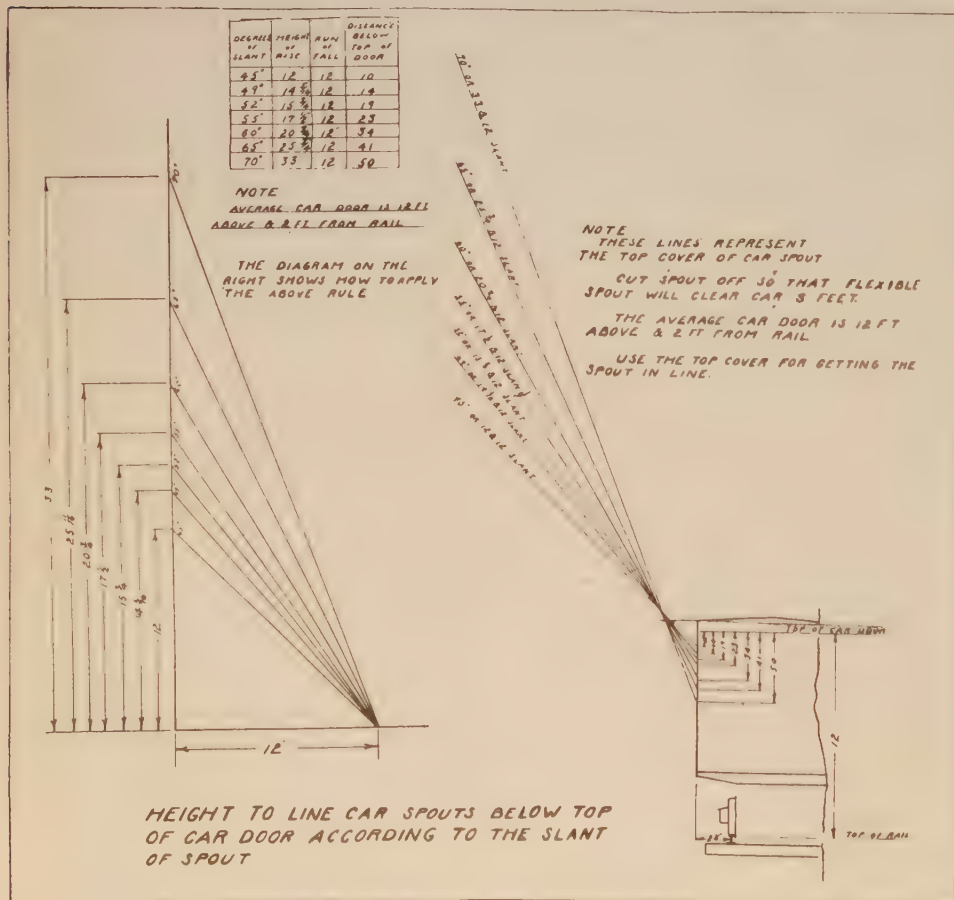 DEGREES of SLANT | HEIGHT of RISE | RUN of FALL | DISTANCE BELOW TOP of DOOR
45° 12 12 10
49° 14 12 14
52° 15 3/4 12 19
55° 17 1/2 12 23
60° 20 3/4 12 34
65° 25 3/4 12 41
70° 33 12 50
NOTE
AVERAGE CAR DOOR IS 12 FT
ABOVE & 2 FT FROM RAIL
THE DIAGRAM ON THE
RIGHT SHOWS HOW TO APPLY
THE ABOVE RULE
70° OR 33 & 12 SLANT
SLANT
SLANT
55° OR 17 1/2 & 12 SLANT
SLANT
SLANT
45° OR 12 & 12 SLANT
NOTE
THESE LINES REPRESENT
THE TOP COVER OF CAR SPOUT
CUT SPOUT OFF SO THAT FLEXIBLE
SPOUT WILL CLEAR CAR 3 FEET.
THE AVERAGE CAR DOOR IS 12 FT
ABOVE & 2 FT FROM RAIL
USE THE TOP COVER FOR GETTING THE
SPOUT IN LINE.
70°
65°
33
25
20
17 1/2
15 3/4
12
12
TOP OF CAR DOOR
19
23
34
41
50
12
TOP OF RAIL
HEIGHT TO LINE CAR SPOUTS BELOW TOP
OF CAR DOOR ACCORDING TO THE SLANT
OF SPOUT